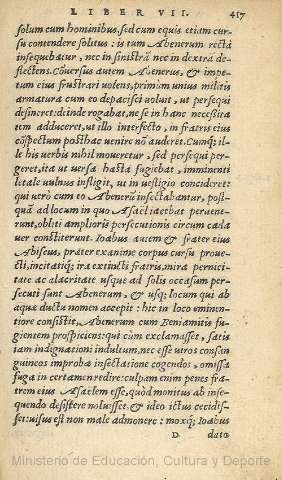 LIBER VII. 417
solum cum hominibus, sed cum equis etiam cur-
su contendere solitus: is tum Abenerum rectà
insequebatur, nec in sinistrā nec in dextra de-
flectens. Cōuersus autem Abenerus, & impe-
tum eius frustrari uolens, primùm unius militis
armatura cum eo depacisci uoluit, ut persequi
desineret: deinde rogabat, ne se in hanc necessita
tem adduceret, ut illo interfecto, in fratris eius
cōspectum posthac uenire nō auderet. Cumq; il-
le his uerbis nihil moueretur, sed persequi per-
geret, ita ut uersa hasta fugiebat, imminenti
litale uulnus infligit, ut in uestigio concideret:
qui uerò cum eo Abenerū insectabantur, post-
quā ad locum in quo Asael iacebat peruene-
runt, obliti amplioris persecutionis circum cada
uer constiterunt. Ioabus autem & frater eius
Abiseus, præter exanime corpus cursu proue-
cti, incitatiq; ira extincti fratris, mira pernici-
tate ac alacritate usque ad solis occasum per-
secuti sunt Abenerum, & usq; locum qui ab
aquæ ductu nomen accepit: hic in loco eminen-
tiore consistit, Abenerum cum Beniamitis fu-
gientem prospiciens: qui cùm exclamasset, satis
tam indignationi indultum, nec esse uiros consan
guineos improbæ insectatione cogendos, omissa
fuga in certamen redire: culpam enim penes fra-
trem eius Asaelem esse, quòd monitus ab inse-
quendo desistere noluisset & ideo ictus cecidis-
set: uisus est non male admonere: moxq; Ioabus
D dato
Ministerio de Educación, Cultura y Deporte